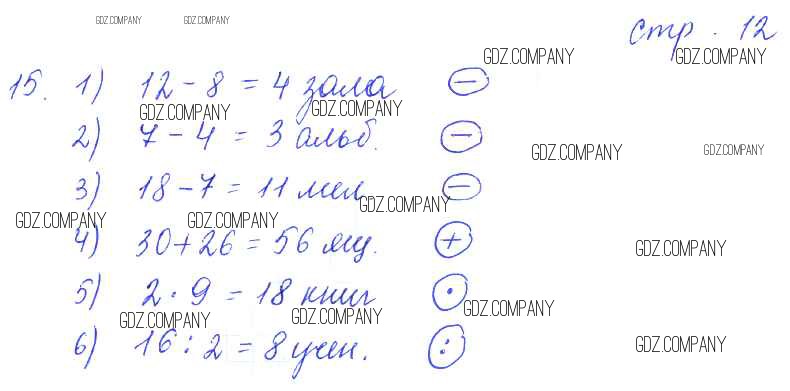 GDZ.COMPANY GDZ.COMPANY
стр. 12
GDZ.COMPANY GDZ.COMPANY
15. 1) 12 - 8 = 4 зала -
GDZ.COMPANY GDZ.COMPANY
2) 7 - 4 = 3 альб. -
GDZ.COMPANY GDZ.COMPANY
3) 18 - 7 = 11 -
GDZ.COMPANY
GDZ.COMPANY GDZ.COMPANY
4) 30 + 26 = 56 +
GDZ.COMPANY
5) 2 · 9 = 18 книг ·
GDZ.COMPANY GDZ.COMPANY GDZ.COMPANY
6) 16 : 2 = 8 учен. :
GDZ.COMPANY